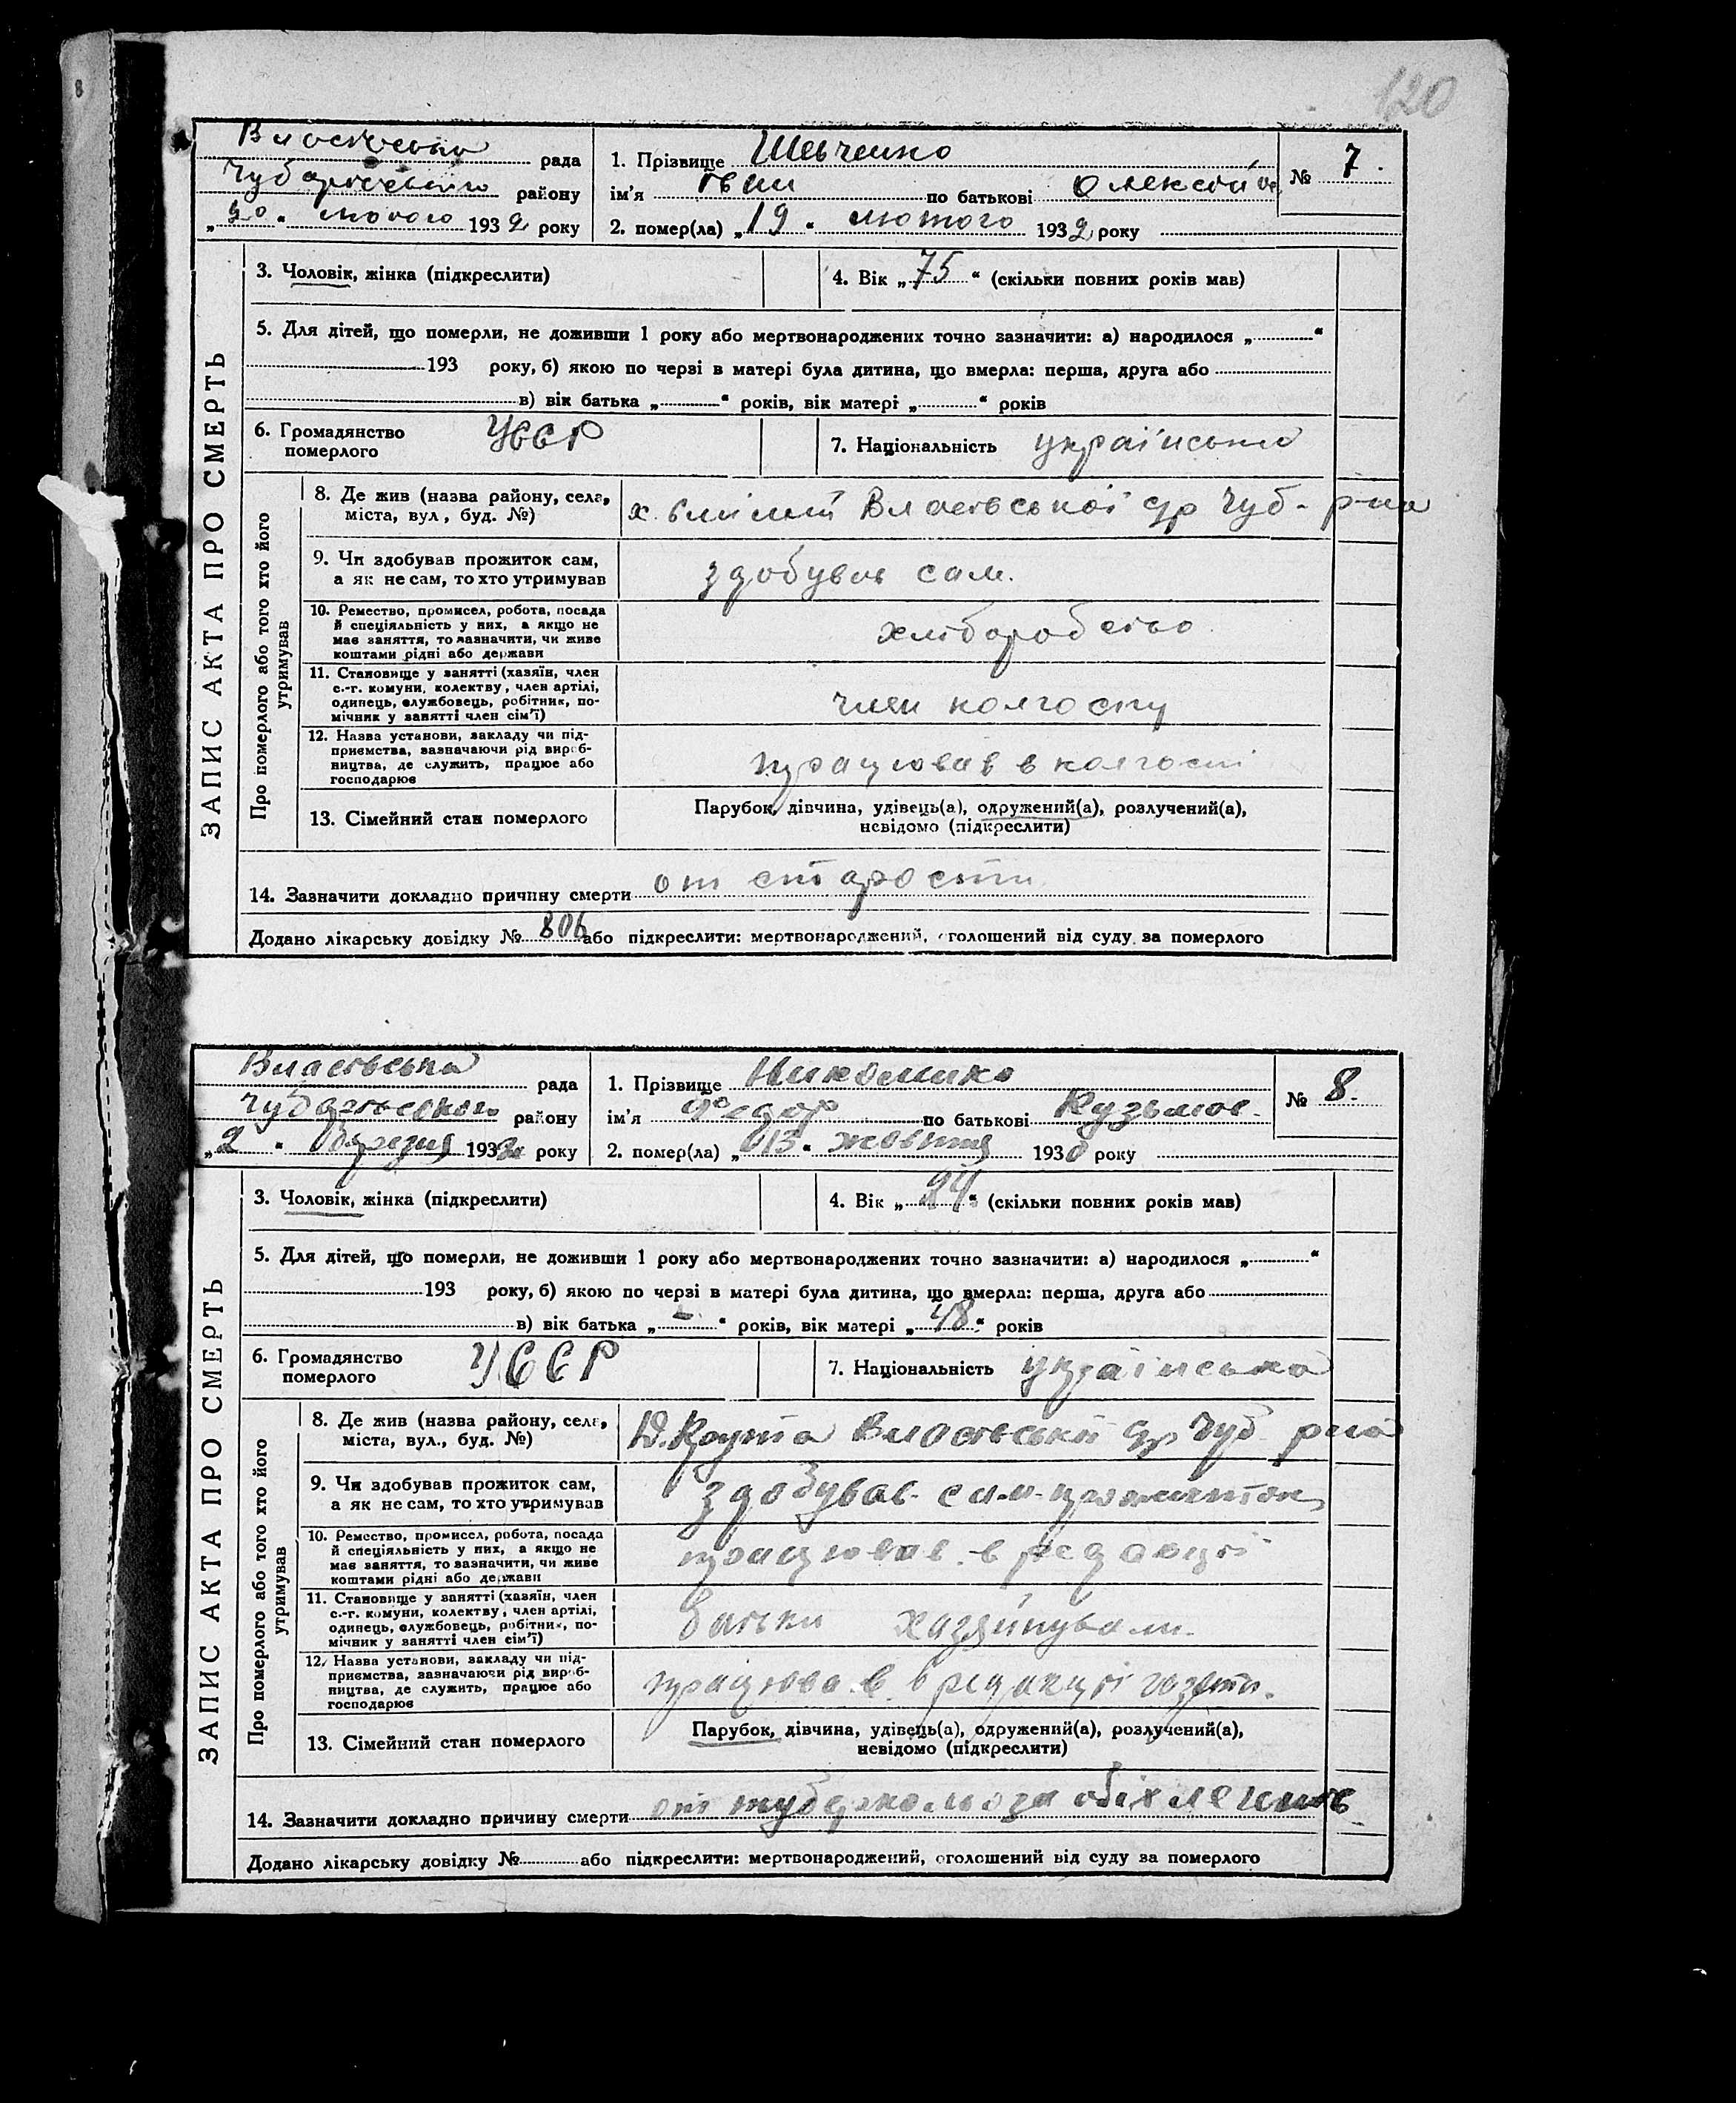 120
Властовська рада
Чубарівського району
„20“ лютого 1932 року
1. Прізвище Шевченко
ім'я Іван по батькові Олексійов.
2. помер(ла) „19“ лютого 1932 року
№ 7.
ЗАПИС АКТА ПРО СМЕРТЬ
3. Чоловік, жінка (підкреслити)
4. Вік „75“ (скільки повних років мав)
5. Для дітей, що померли, не доживши 1 року або мертвонароджених точно зазначити: а) народилося „ “
193 року, б) якою по черзі в матері була дитина, що вмерла: перша, друга або
в) вік батька „ “ років, вік матері „ “ років
6. Громадянство
померлого
УССР
7. Національність українська
Про померлого або того хто його
утримував
8. Де жив (назва району, села,
міста, вул, буд. №)
х. Властвської с/р Чуб. р-на
9. Чи здобував прожиток сам,
а як не сам, то хто утримував
здобував сам.
10. Ремество, промисел, робота, посада
й спеціяльність у них, а якщо не
має заняття, то зазначити, чи живе
коштами рідні або держави
хліборобство
11. Становище у занятті (хазяїн, член
с.-г. комуни, колектву, член артілі,
одинець, службовець, робітник, по-
мічник у занятті член сім'ї)
член колгоспу
12. Назва установи, закладу чи під-
приємства, зазначаючи рід вироб-
ництва, де служить, працює або
господарює
працював в колгоспі
13. Сімейний стан померлого
Парубок, дівчина, удівець(а), одружений(а), розлучений(а),
невідомо (підкреслити)
14. Зазначити докладно причину смерти от старости
Додано лікарську довідку № 806 або підкреслити: мертвонароджений, оголошений від суду за померлого
Властвська рада
Чубарівського району
„2“ Березня 1932 року
1. Прізвище Никоненко
ім'я Федор по батькові Кузьмов.
2. помер(ла) „13“ жовтня 1930 року
№ 8.
ЗАПИС АКТА ПРО СМЕРТЬ
3. Чоловік, жінка (підкреслити)
4. Вік „24“ (скільки повних років мав)
5. Для дітей, що померли, не доживши 1 року або мертвонароджених точно зазначити: а) народилося „ “
193 року, б) якою по черзі в матері була дитина, що вмерла: перша, друга або
в) вік батька „-“ років, вік матері „48“ років
6. Громадянство
померлого
УССР
7. Національність українська
Про померлого або того хто його
утримував
8. Де жив (назва району, села,
міста, вул., буд. №)
Крута Властвській с/р Чуб р-на
9. Чи здобував прожиток сам,
а як не сам, то хто утримував
здобував сам прожиток
10. Ремество, промисел, робота, посада
й спеціяльність у них, а якщо не
має заняття, то зазначити, чи живе
коштами рідні або держави
працював в редакції
11. Становище у занятті (хазяїн, член
с.-г. комуни, колектву, член артілі,
одинець, службовець, робітник, по-
мічник у занятті член сім'ї)
батьки хазяйнували.
12. Назва установи, закладу чи під-
приємства, зазначаючи рід вироб-
ництва, де служить, працює або
господарює
працював в редакції газети.
13. Сімейний стан померлого
Парубок, дівчина, удівець(а), одружений(а), розлучений(а),
невідомо (підкреслити)
14. Зазначити докладно причину смерти от туберкольоза обіх легких
Додано лікарську довідку № або підкреслити: мертвонароджений, оголошений від суду за померлого